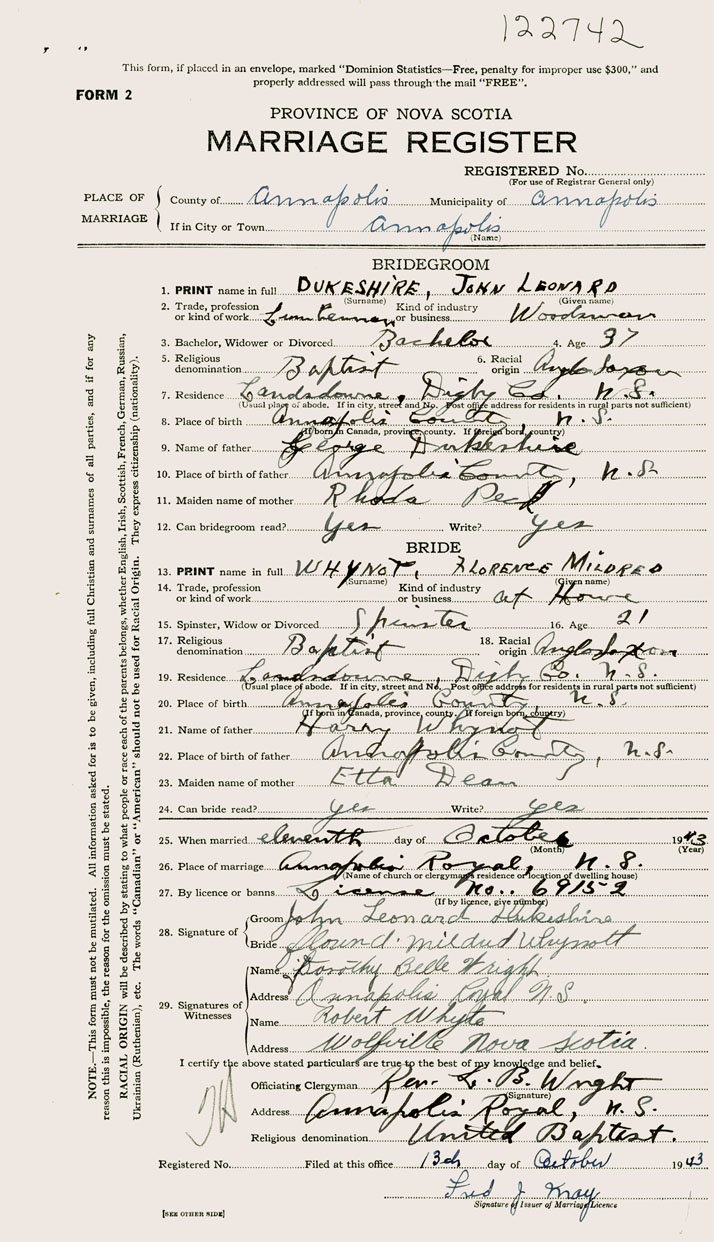 122742
This form, if placed in an envelope, marked "Dominion Statistics—Free, penalty for improper use $300," and
properly addressed will pass through the mail "FREE".
FORM 2
PROVINCE OF NOVA SCOTIA
MARRIAGE REGISTER
REGISTERED No.
(For use of Registrar General only)
PLACE OF MARRIAGE
County of Annapolis Municipality of Annapolis
If in City or Town Annapolis
(Name)
BRIDEGROOM
1. PRINT name in full DUKESHIRE, JOHN LEONARD
(Surname) (Given name)
2. Trade, profession or kind of work Lumberman Kind of industry or business Woodsman
3. Bachelor, Widower or Divorced Bachelor 4. Age 37
5. Religious denomination Baptist 6. Racial origin Anglo Saxon
7. Residence Landsdowne, Digby Co. N.S.
(Usual place of abode. If in city, street and No. Post office address for residents in rural parts not sufficient)
8. Place of birth Annapolis County, N.S.
(If born in Canada, province, county. If foreign born, country)
9. Name of father George Dukeshire
10. Place of birth of father Annapolis County, N.S.
11. Maiden name of mother Rhoda Peck
12. Can bridegroom read? Yes Write? Yes
BRIDE
13. PRINT name in full WHYNOT, FLORENCE MILDRED
(Surname) (Given name)
14. Trade, profession or kind of work Kind of industry or business at Home
15. Spinster, Widow or Divorced Spinster 16. Age 21
17. Religious denomination Baptist 18. Racial origin Anglo Saxon
19. Residence Landsdowne, Digby Co. N.S.
(Usual place of abode. If in city, street and No. Post office address for residents in rural parts not sufficient)
20. Place of birth Annapolis County, N.S.
(If born in Canada, province, county. If foreign born, country)
21. Name of father Harry Whynot
22. Place of birth of father Annapolis County, N.S.
23. Maiden name of mother Etta Dean
24. Can bride read? Yes Write? yes
25. When married eleventh day of October 1943
(Month) (Year)
26. Place of marriage Annapolis Royal, N.S.
(Name of church or clergyman's residence or location of dwelling house)
27. By licence or banns License No.. 69152
(If by licence, give number)
28. Signature of
Groom John Leonard Dukeshire
Bride Mildred Whynott
29. Signatures of Witnesses
Name Dorothy Belle Wright
Address Annapolis Royal N.S.
Name Robert Whyte
Address Wolfville Nova Scotia.
I certify the above stated particulars are true to the best of my knowledge and belief.
Officiating Clergyman Rev. L. B. Wright
(Signature)
Address Annapolis Royal, N.S.
Religious denomination United Baptist.
Registered No. Filed at this office 13th day of October 1943
Fred J May
Signature of Issuer of Marriage Licence
[SEE OTHER SIDE]
NOTE.—This form must not be mutilated. All information asked for is to be given, including full Christian and surnames of all parties, and if for any
reason this is impossible, the reason for the omission must be stated.
RACIAL ORIGIN will be described by stating to what people or race each of the parents belongs, whether English, Irish, Scottish, French, German, Russian,
Ukrainian (Ruthenian), etc. The words "Canadian" or "American" should not be used for Racial Origin. They express citizenship (nationality).